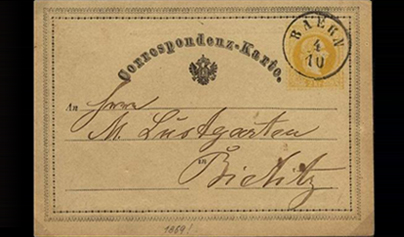 BAERN
4
10
Correspondenz-Karte.
An Herrn
M. Lustgarten
in Bielitz
1869!